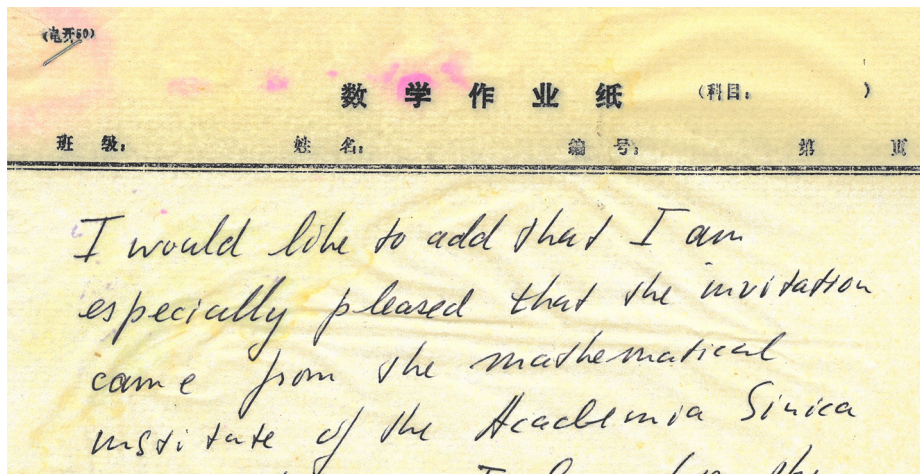 (电开60)
数学作业纸 (科目: )
班 级: 姓 名: 编 号: 第 页
I would like to add that I am
especially pleased that the invitation
came from the mathematical
institute of the Academia Sinica